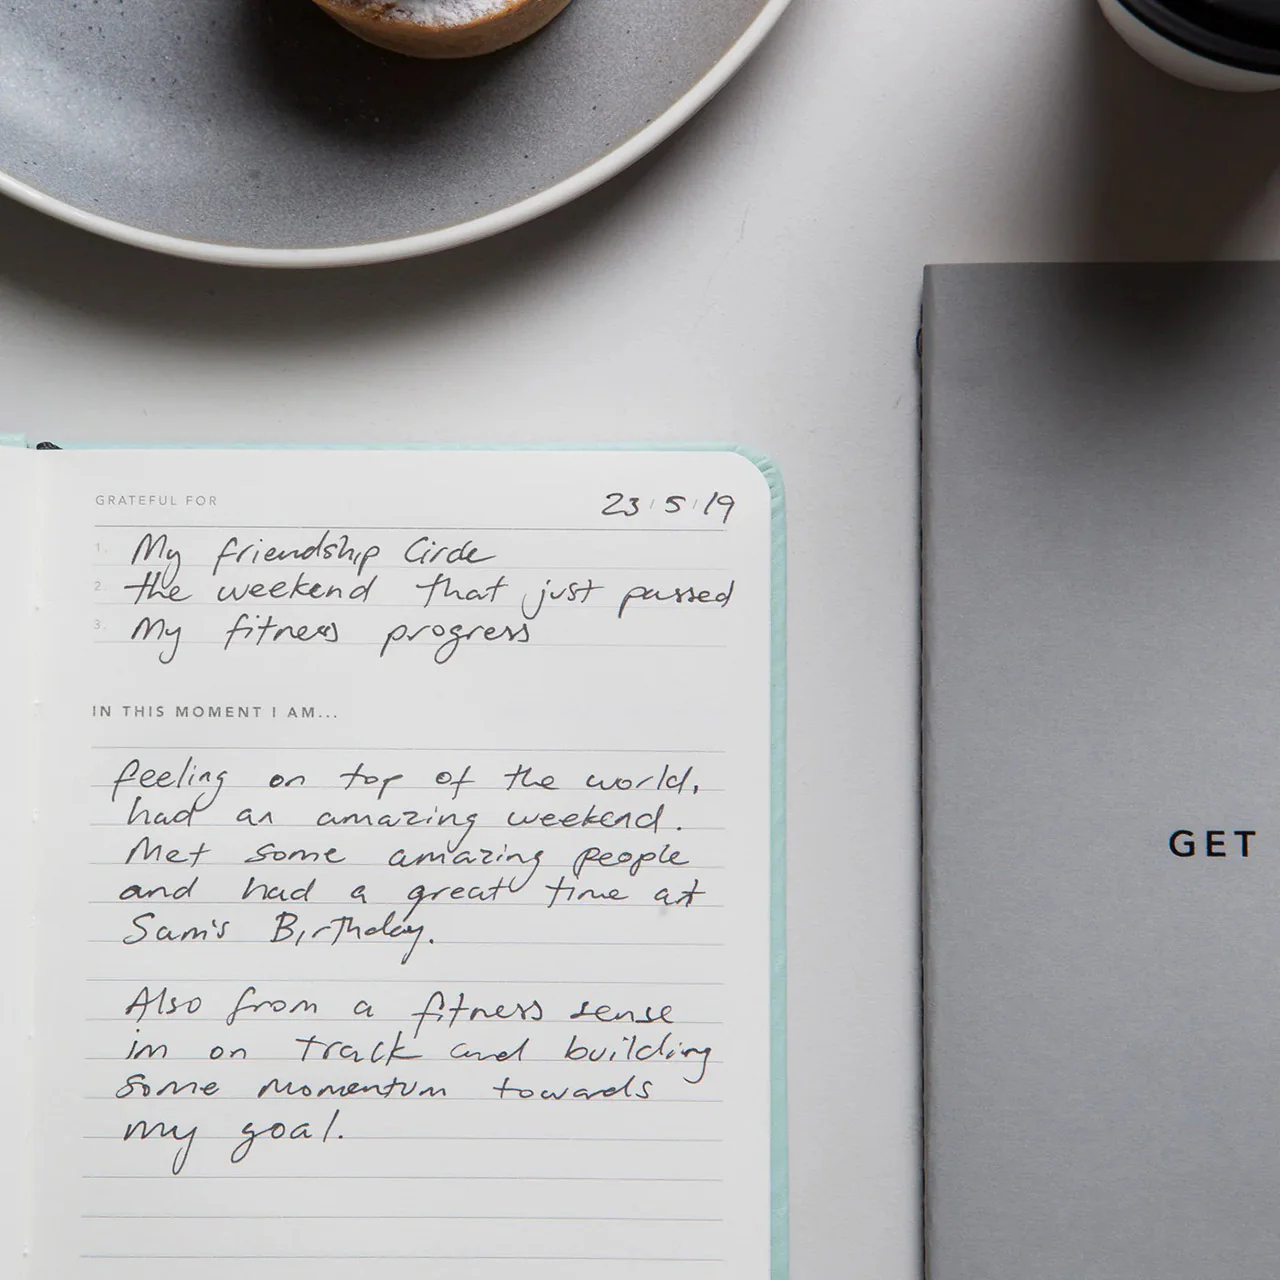 GRATEFUL FOR
23/5/19
1. My friendship Circle
2. the weekend that just passed
3. My fitness progress
IN THIS MOMENT I AM...
feeling on top of the world,
had an amazing weekend.
Met some amazing people
and had a great time at
Sam's Birthday.
Also from a fitness sense
im on track and building
some momentum towards
my goal.
GET